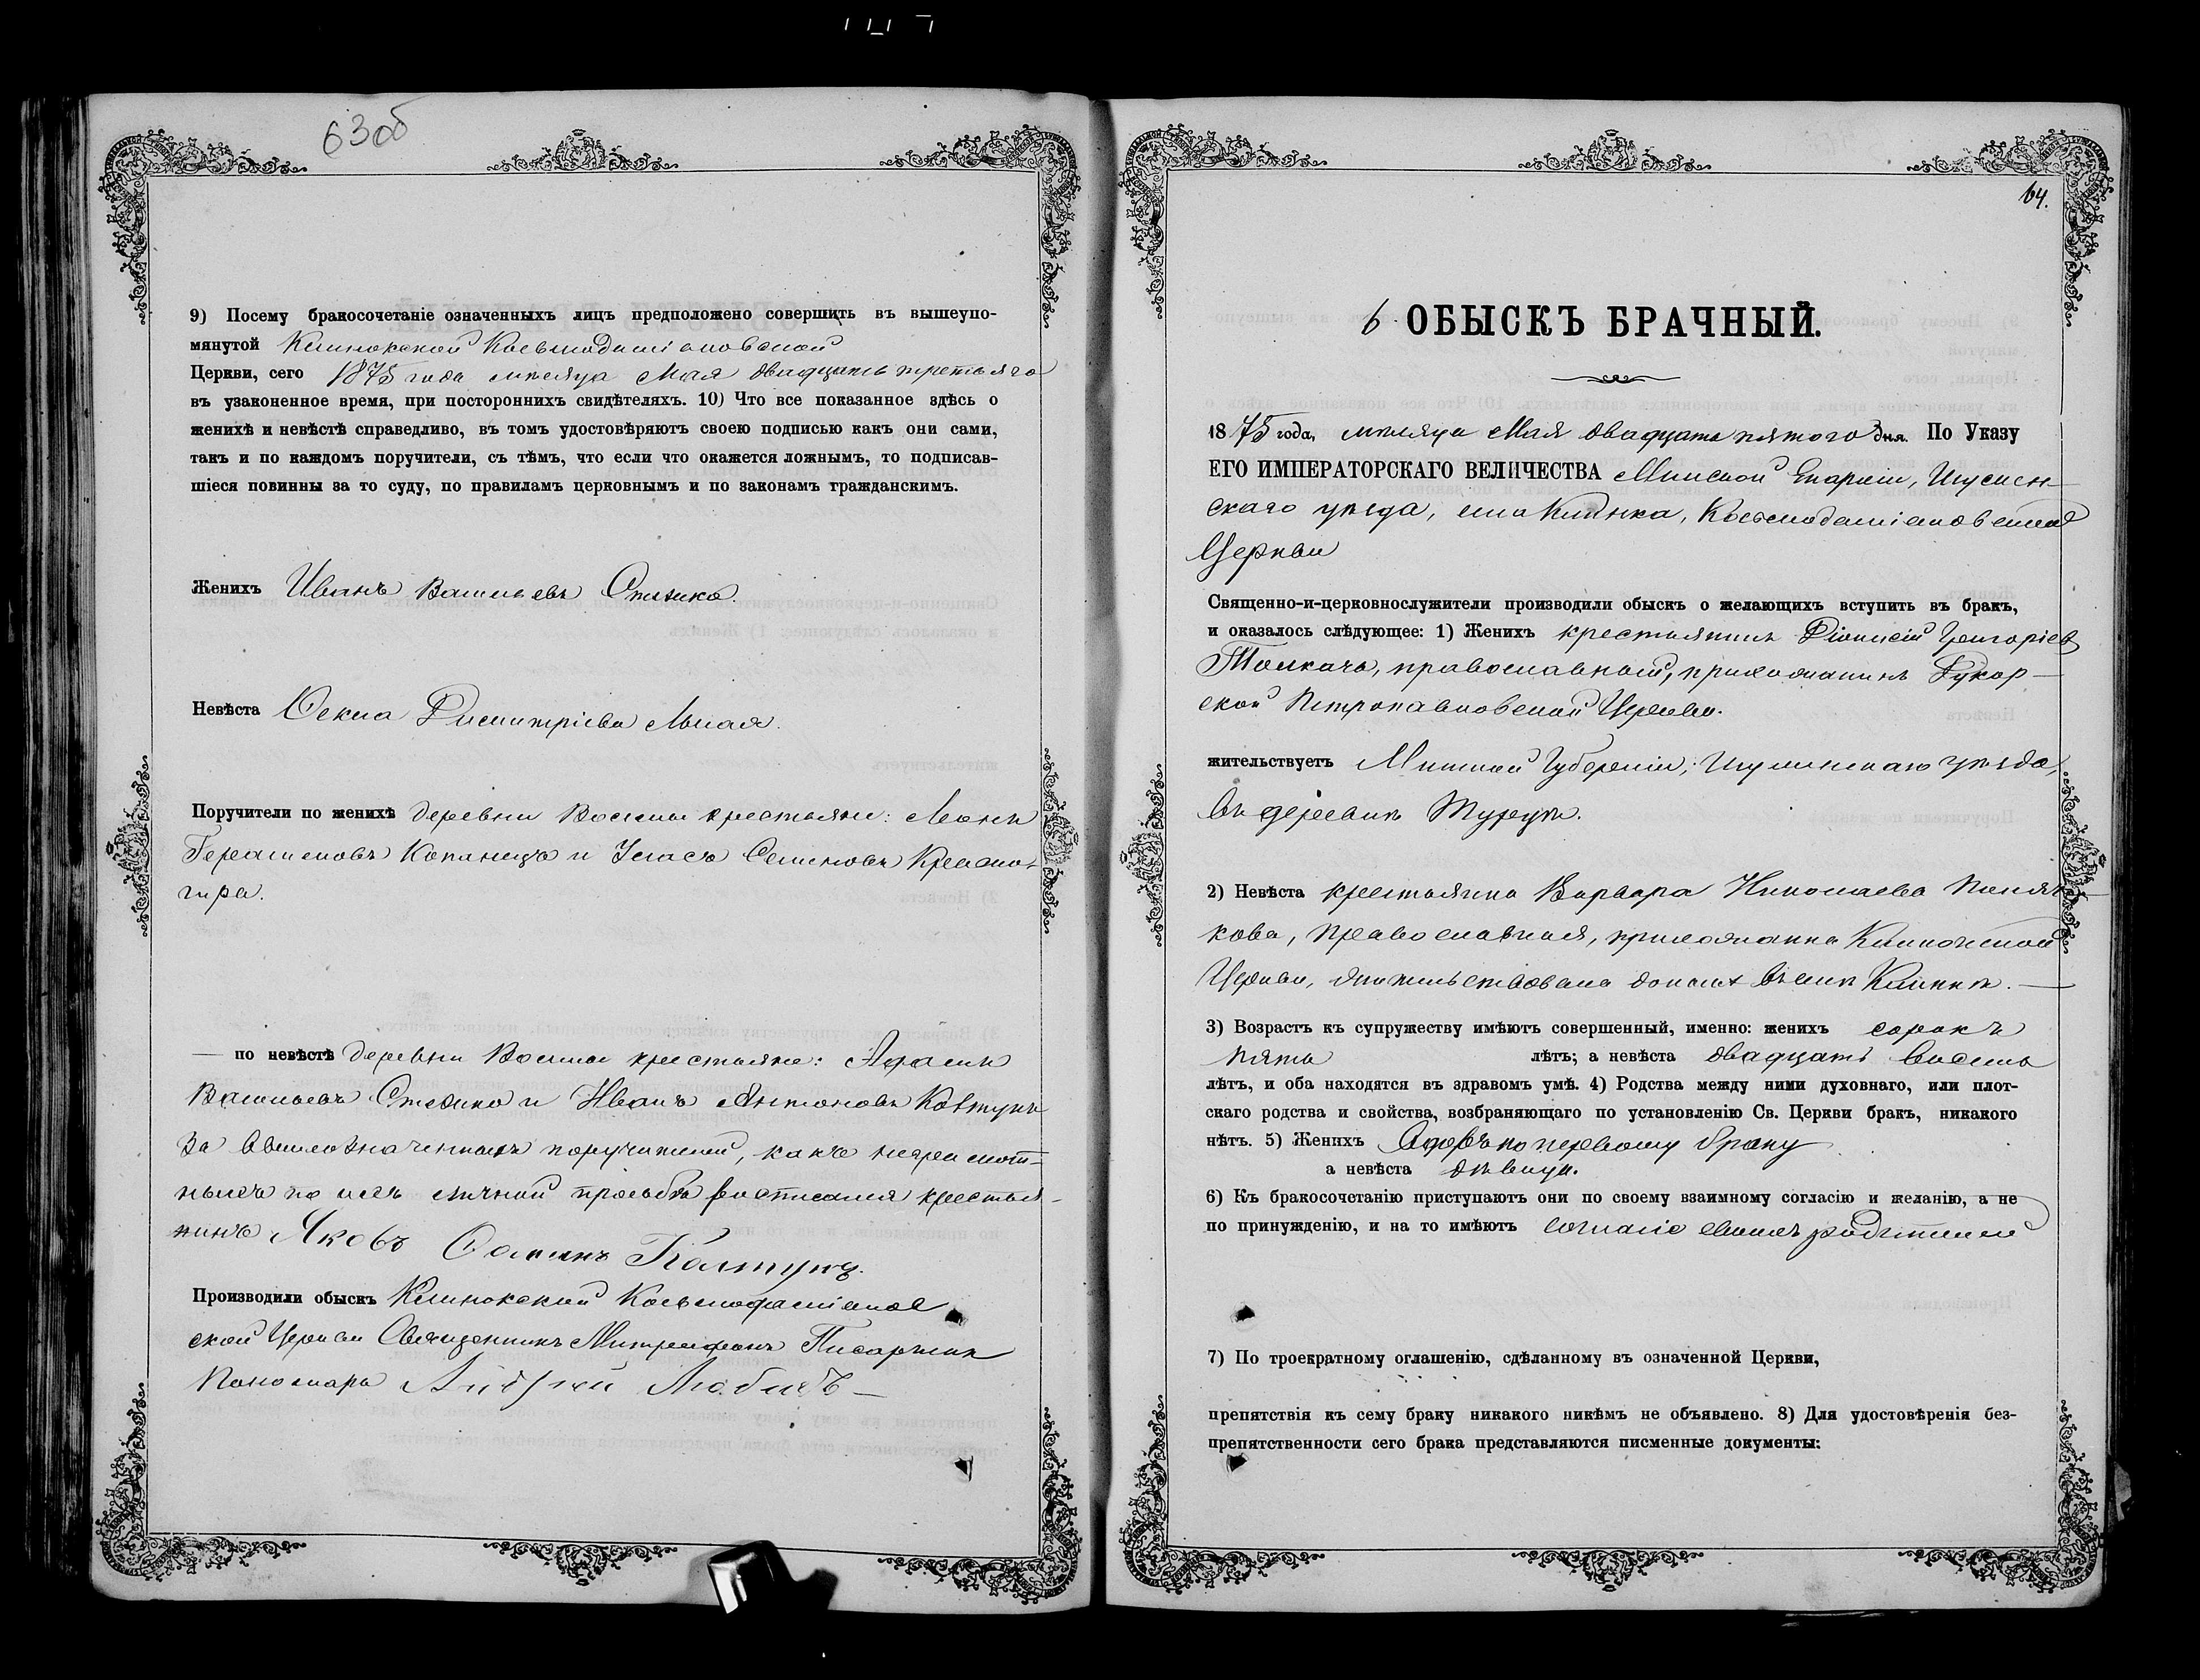 63об
9) Посему бракосочетаніе означенныхъ лицъ предположено совершить въ вышеупо-
мянутой Клинокской Косьмодаміановской
Церкви, сего 1875 года мѣсяца Мая двадцать третьяго
въ узаконенное время, при постороннихъ свидѣтеляхъ. 10) Что все показанное здѣсь о
женихѣ и невѣстѣ справедливо, въ томъ удостовѣряютъ своею подписью какъ они сами,
такъ и по каждомъ поручители, съ тѣмъ, что если что окажется ложнымъ, то подписав-
шіеся повинны за то суду, по правиламъ церковнымъ и по законамъ гражданскимъ.
Женихъ Иванъ Васильевъ
Невѣста Димитріева
Поручители по женихѣ деревни крестьяне:
Герасимовъ Копанецъ и Семеновъ
— по невѣстѣ деревни крестьяне:
Васильевъ и Иванъ Антоновъ Ковтунъ
За вышеозначенныхъ поручителей, какъ неграмот-
ныхъ по ихъ личной просьбѣ росписался крестья-
нинъ Яковъ Колтунъ.
Производили обыскъ Клинокской Косьмодаміанов
ской Церкви Священникъ Митрофанъ
Пономарь Андрей
64.
6 ОБЫСКЪ БРАЧНЫЙ.
1875 года, мѣсяца Мая двадцать пятого дня. По Указу
ЕГО ИМПЕРАТОРСКАГО ВЕЛИЧЕСТВА Минской Епархіи, Игумен-
скаго уѣзда, села Клинка, Косьмодаміановской
Церкви
Священно-и-церковнослужители производили обыскъ о желающихъ вступить въ бракъ,
и оказалось слѣдующее: 1) Женихъ крестьянинъ Діонисій Григоріев
Толкачъ, православный, прихожанинъ Дукор-
ской Петропавловской Церкви.
жительствуетъ Минской Губерніи, Игуменскаго уѣзда,
въ деревнѣ Турецъ.
2) Невѣста крестьянка Варвара Николаева
кова, православная, прихожанка Клинокской
Церкви, жительствовала донынѣ въ селѣ Клинкѣ.
3) Возрастъ къ супружеству имѣютъ совершенный, именно: женихъ сорокъ
пять лѣтъ; а невѣста двадцать восемь
лѣтъ, и оба находятся въ здравомъ умѣ. 4) Родства между ними духовнаго, или плот-
скаго родства и свойства, возбраняющаго по установленію Св. Церкви бракъ, никакого
нѣтъ. 5) Женихъ вдовъ по первому браку
а невѣста дѣвица.
6) Къ бракосочетанію приступаютъ они по своему взаимному согласію и желанію, а не
по принужденію, и на то имѣютъ согласіе своихъ родителей
7) По троекратному оглашенію, сдѣланному въ означенной Церкви,
препятствія къ сему браку никакого никѣмъ не объявлено. 8) Для удостовѣренія без-
препятственности сего брака представляются писменные документы: